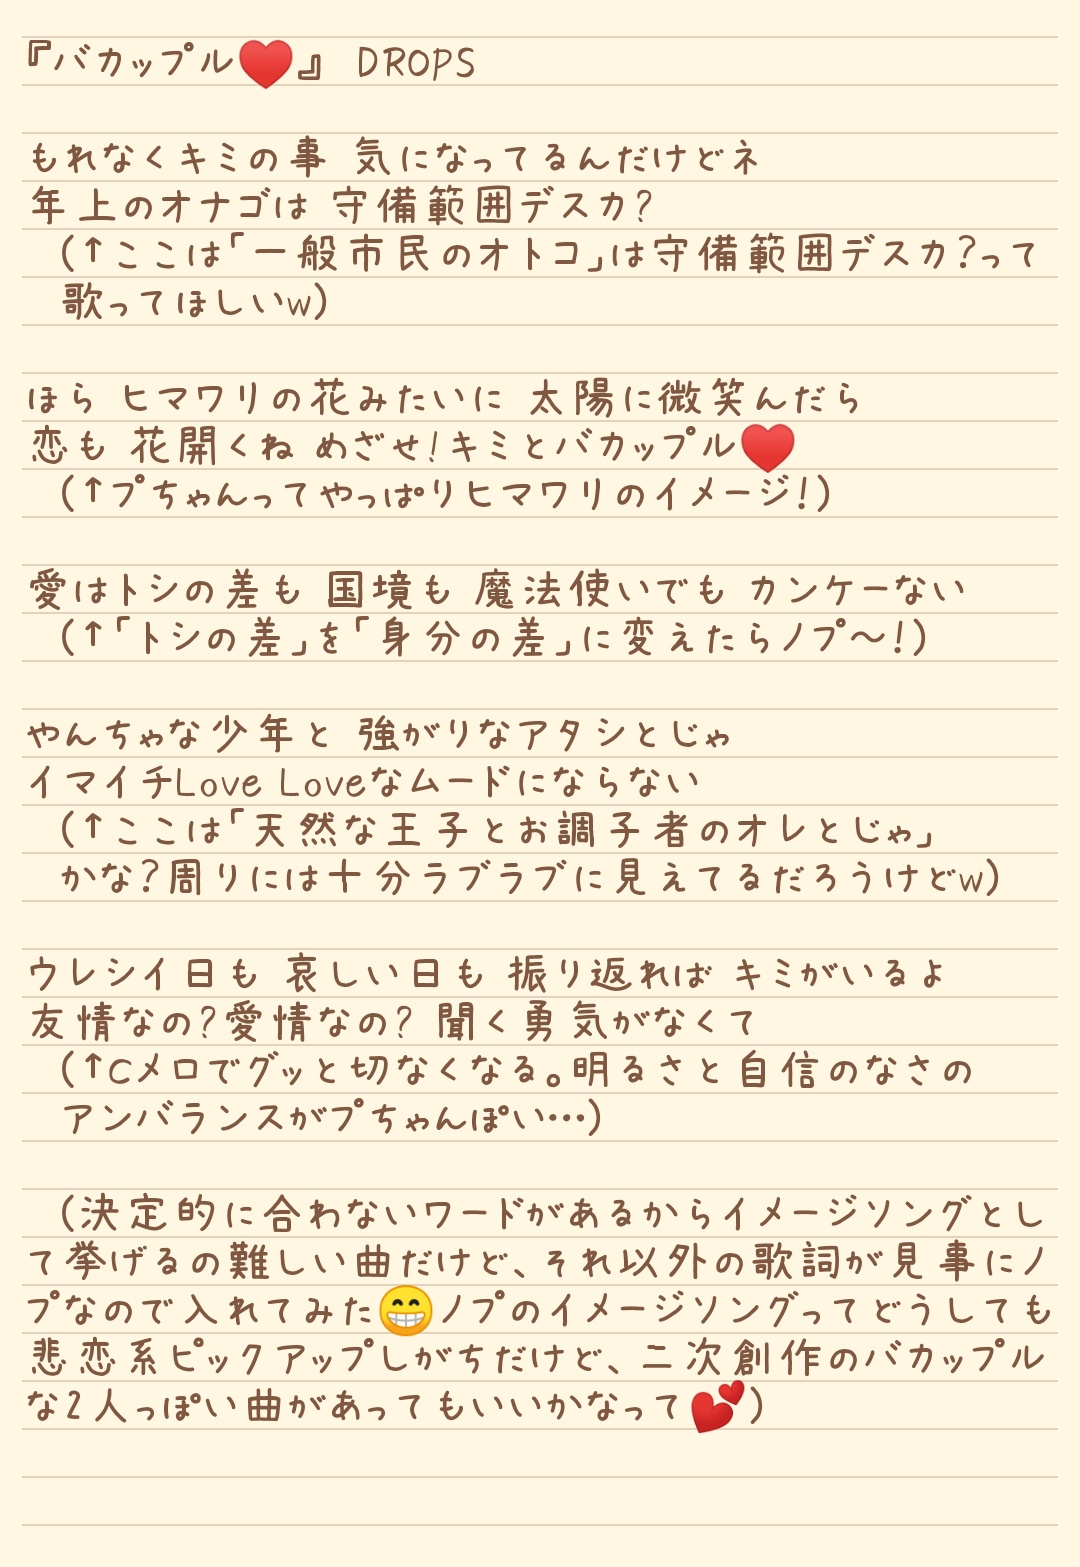 『バカップル♥』 DROPS
もれなくキミの事 気になってるんだけどネ
年上のオナゴは 守備範囲デスカ?
(↑ここは「一般市民のオトコ」は守備範囲デスカ?って
歌ってほしいw)
ほら ヒマワリの花みたいに 太陽に微笑んだら
恋も 花開くね めざせ!キミとバカップル♥
(↑プちゃんってやっぱりヒマワリのイメージ!)
愛はトシの差も 国境も 魔法使いでも カンケーない
(↑「トシの差」を「身分の差」に変えたらノプ〜!)
やんちゃな少年と 強がりなアタシとじゃ
イマイチLove Loveなムードにならない
(↑ここは「天然な王子とお調子者のオレとじゃ」
かな?周りには十分ラブラブに見えてるだろうけどw)
ウレシイ日も 哀しい日も 振り返れば キミがいるよ
友情なの?愛情なの? 聞く勇気がなくて
(↑Cメロでグッと切なくなる。明るさと自信のなさの
アンバランスがプちゃんぽい…)
(決定的に合わないワードがあるからイメージソングとし
て挙げるの難しい曲だけど、それ以外の歌詞が見事にノ
プなので入れてみた😁ノプのイメージソングってどうしても
悲恋系ピックアップしがちだけど、二次創作のバカップル
な2人っぽい曲があってもいいかなって💕)